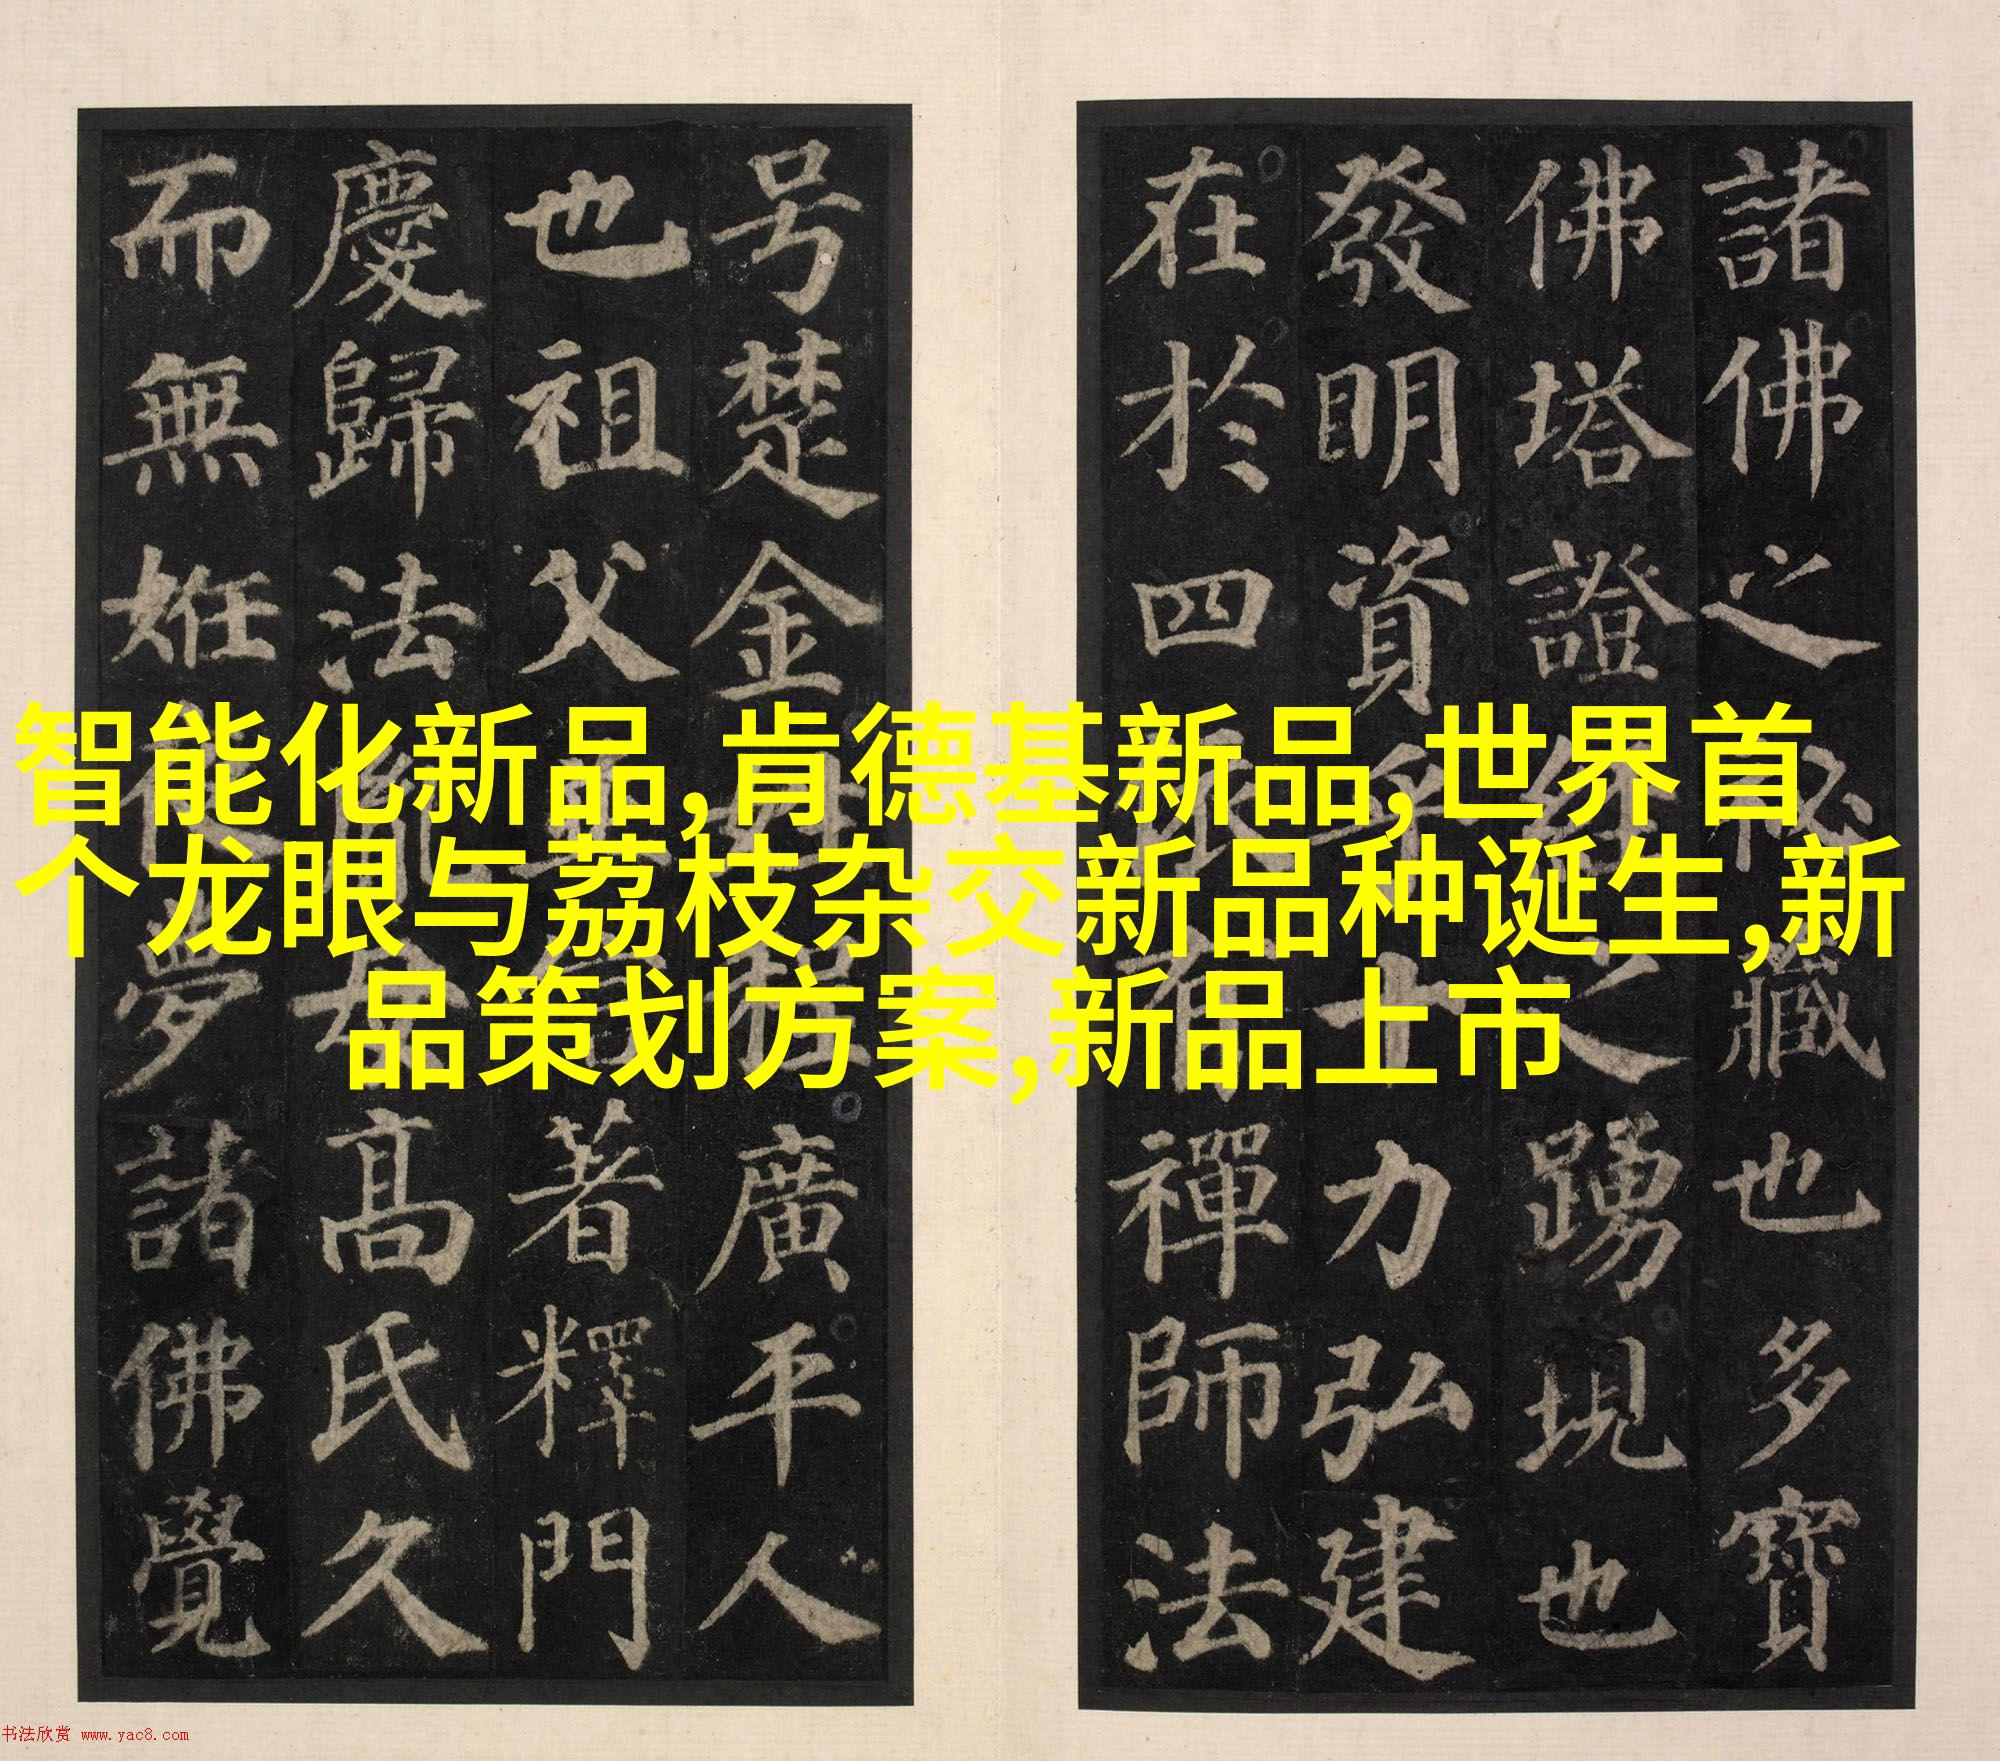 智能化新品,肯德基新品,世界首
个龙眼与荔枝杂交新品种诞生,新
品策划方案,新品上市
諸佛之祕藏也多寶
佛塔證經之踴現也
發明資乎十力弘建
在於四依有禪師法
号楚金姓程廣平人
也祖父並信著釋門
慶歸法胤母高氏久
而無姙夜夢諸佛覺
书法欣赏 www.yac8.com